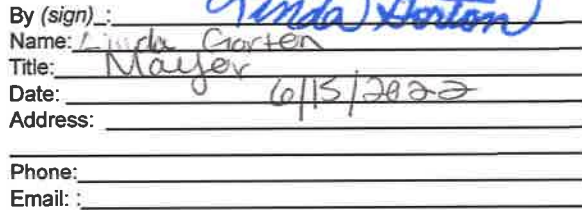 By (sign)_: Linda Gorton
Name: Linda Gorten
Title: Mayor
Date: 6/15/2022
Address:
Phone:
Email: :